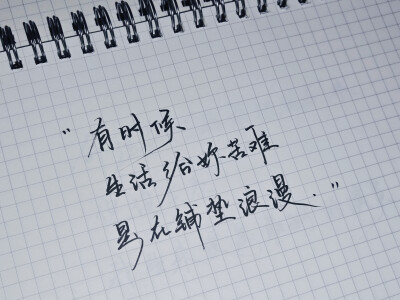 “有时候、
生活给妳苦难
是在铺垫浪漫.”